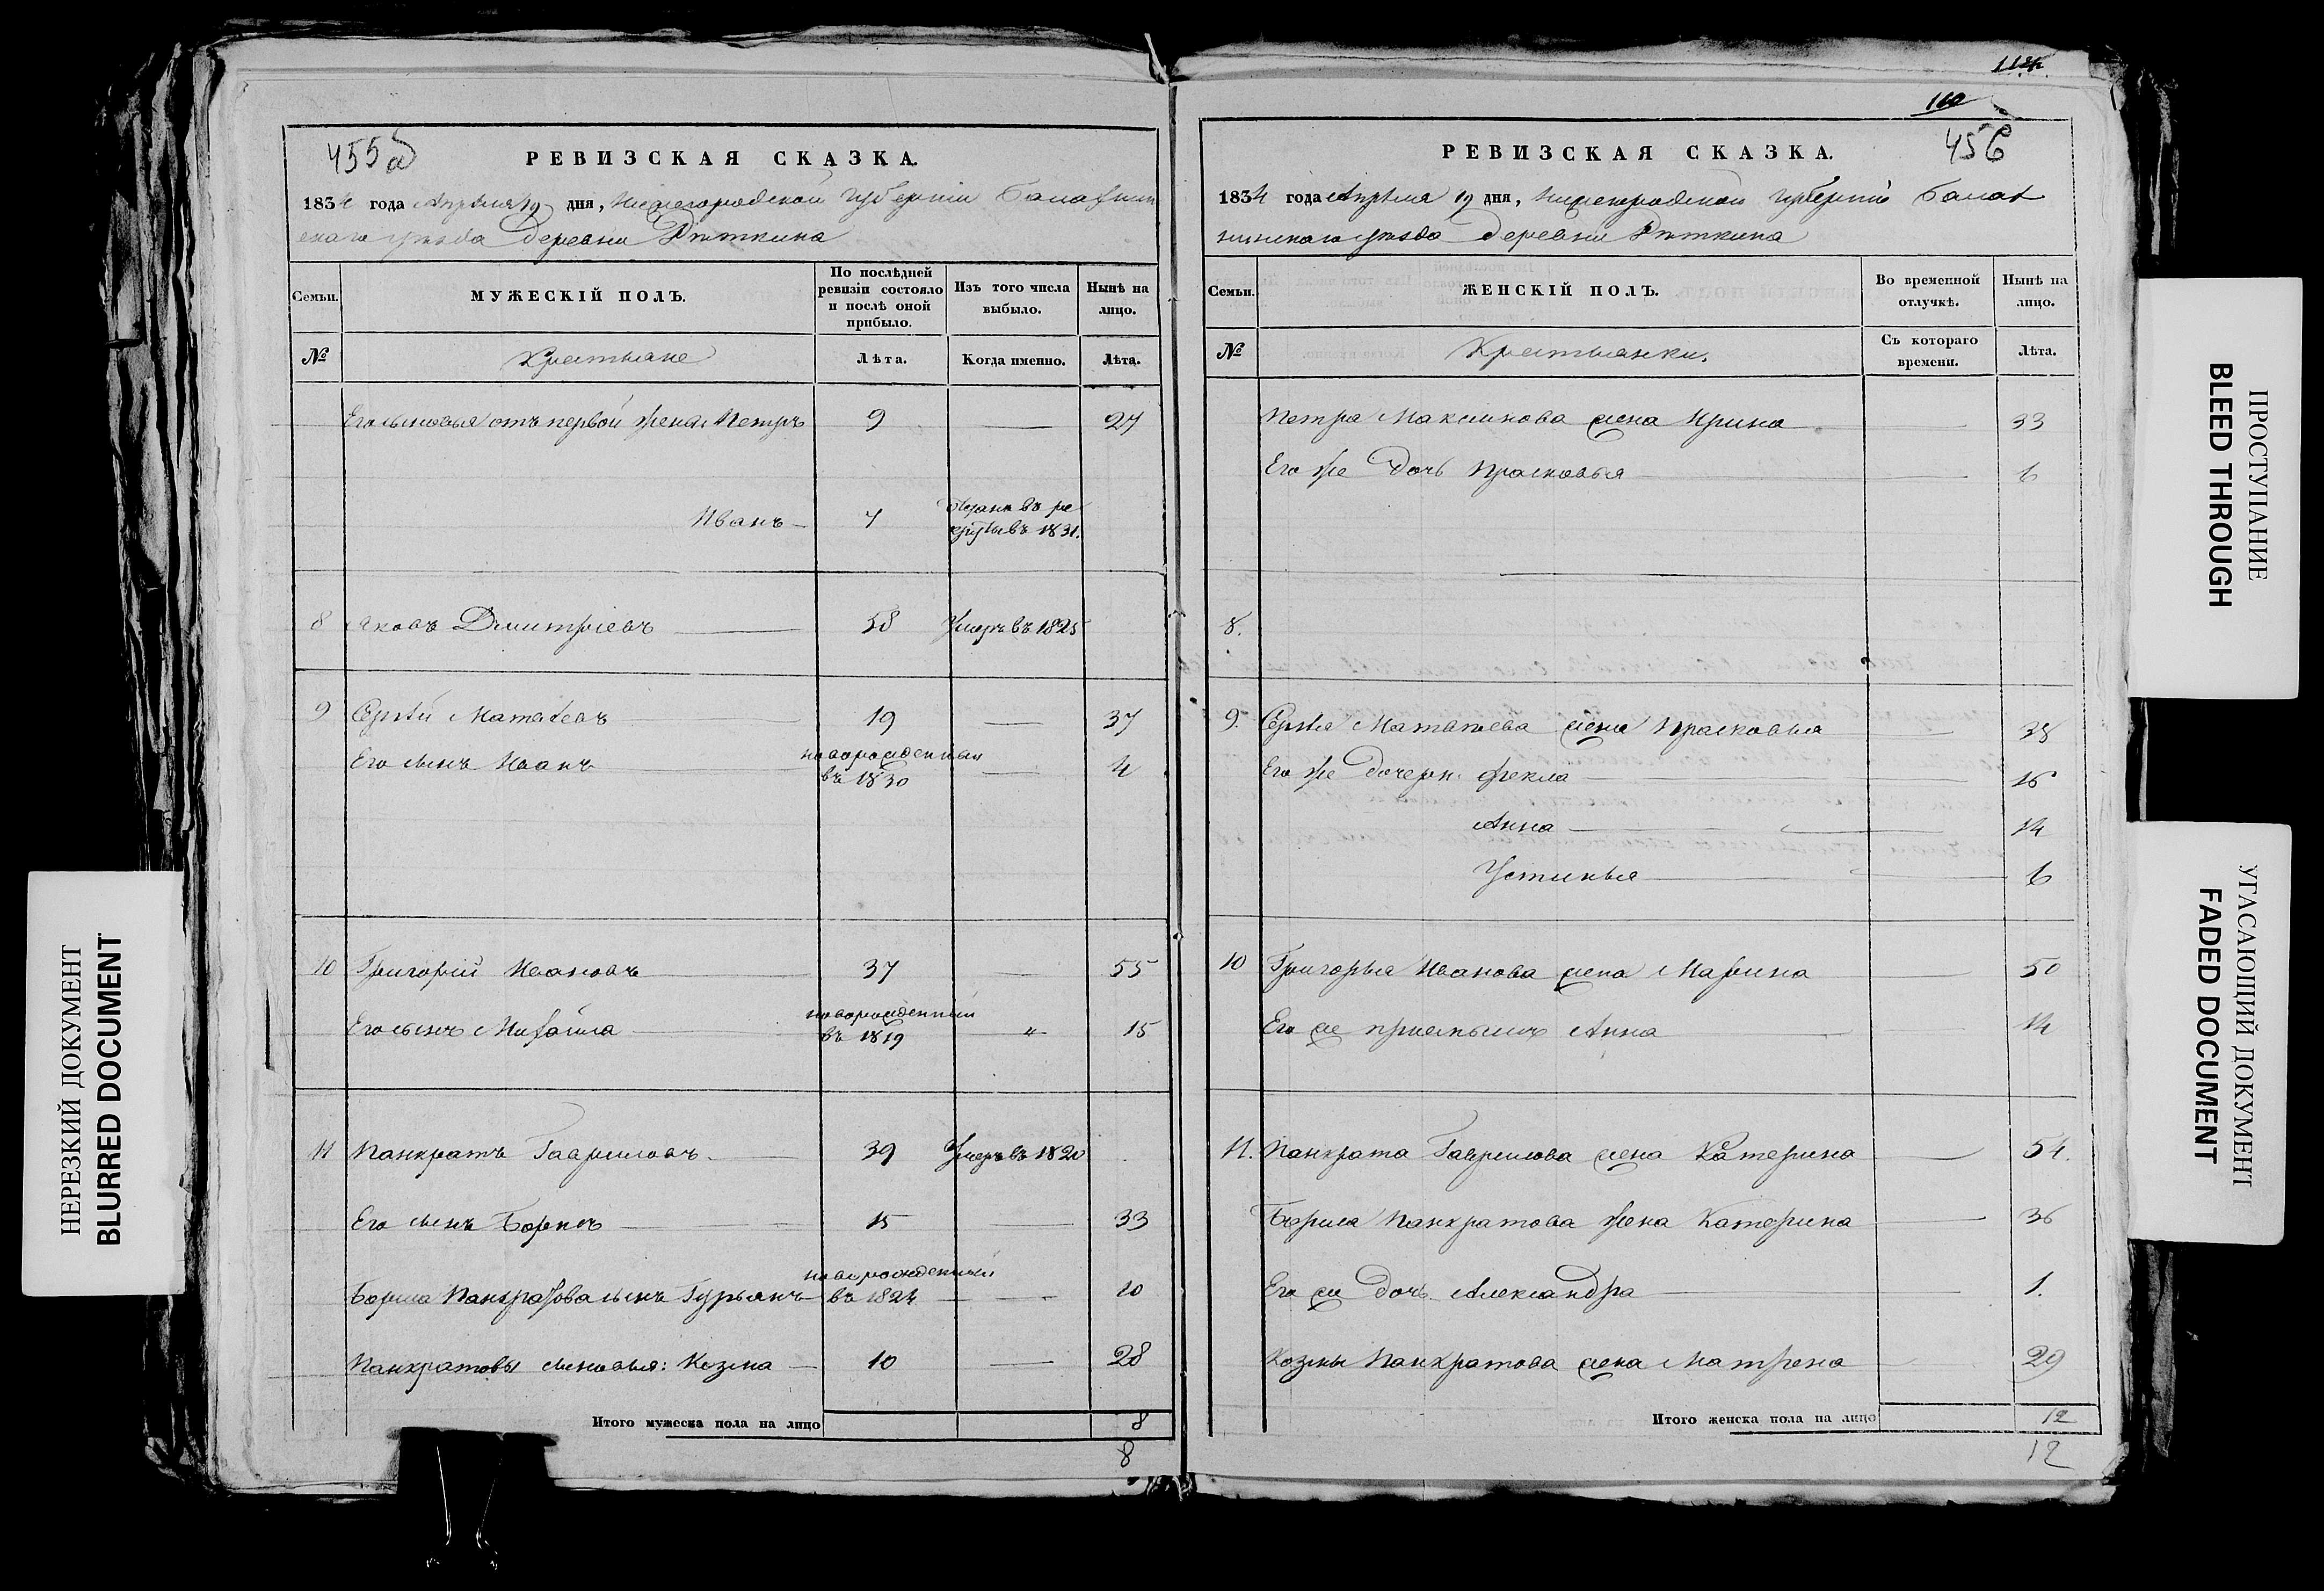 455об
РЕВИЗСКАЯ СКАЗКА.
1834 года Апрѣля 19 дня, Нижегородской губерніи Балахнин
скаго уѣзда деревни
Семьи.
МУЖЕСКІЙ ПОЛЪ.
По послѣдней ревизіи состояло и послѣ оной прибыло.
Изъ того числа выбыло.
Нынѣ на лицо.
№ Крестьяне Лѣта. Когда именно. Лѣта.
Его сыновья отъ первой жены Петръ 9 — 27
Иванъ —
въ ре
круты въ 1831.
8 Яковъ Дмитріевъ — 58 Умеръ въ 1825
9 Сергѣй Матвѣевъ 19 — 37
Его сынъ Иванъ новорожденный въ 1830 — 4
10 Григорій Ивановъ 37 — 55
Его сынъ Михайла новорожденный въ 1819 " 15
11 Панкратъ Гавриловъ. 39 Умеръ въ 1820
Его сынъ Борисъ 15 — 33
Бориса Панкратова сынъ Гурьянъ новорожденный въ 1824 — 10
Панкратовы сыновья: Козма — 10 — 28
Итого мужеска пола на лицо 8
8
114
110
456
РЕВИЗСКАЯ СКАЗКА.
1834 года Апрѣля 19 дня, Нижегородской губерніи Балах
нинскаго уѣзда деревни
Семьи.
ЖЕНСКІЙ ПОЛЪ.
Во временной отлучкѣ.
Нынѣ на лицо.
№ Крестьянки. Съ котораго времени. Лѣта.
Петра Максимова жена Ирина — 33
Его же дочь Прасковья — 6
8.
9. Сергѣя Матвѣева жена Прасковья — 38
Его же дочери: Фекла — 16
Анна — 14
Устинья — 6
10 Григорья Иванова жена Марина 50
Его же Анна 14
11. Панкрата Гаврилова жена Катерина — 54.
Бориса Панкратова жена Катерина — 36
Его же дочь Александра — 1.
Козмы Панкратова жена Матрена 29
Итого женска пола на лицо 12
12
НЕРЕЗКИЙ ДОКУМЕНТ
BLURRED DOCUMENT
ПРОСТУПАНИЕ
BLEED THROUGH
УГАСАЮЩИЙ ДОКУМЕНТ
FADED DOCUMENT